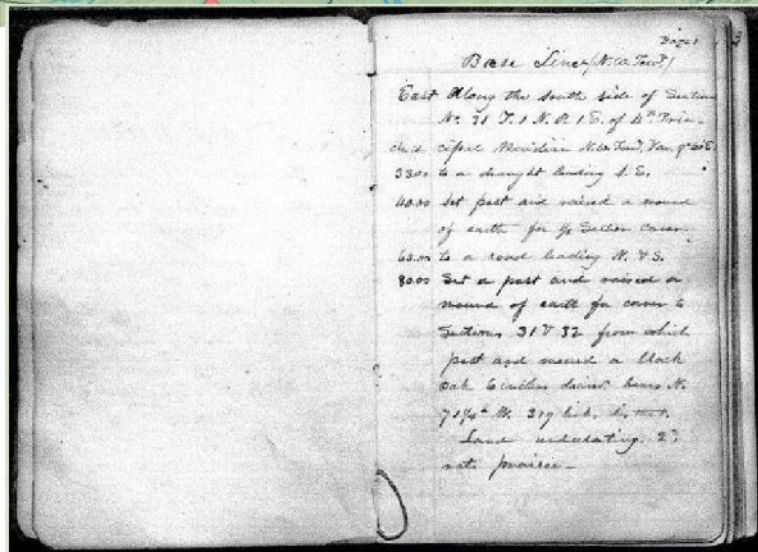 Page 1
Base Line (N.W. Terr.)
East Along the south side of Section
No. 31 T. 1 N. R 1 E. of 4th Prin-
cipal Meridian N.W. Terr. Var. 9°
38.00 to a draught leading S. E.
40.00 Set post and raised a mound
of earth for 1/4 Section corner
to a road leading N. & S.
80.00 Set a post and raised a
mound of earth for corner to
Sections 31 & 32 from which
post and mound a black
oak 6 inches diam. bears N.
W. 319 links distant.
Land undulating 2d
rate prairie -